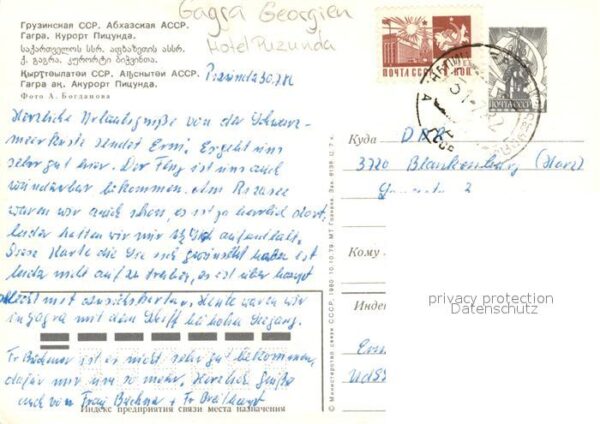 Gagra Georgien
Hotel Pizunda
Грузинская ССР. Абхазская АССР.
Гагра. Курорт Пицунда.
საქართველოს სსრ. აფხაზეთის ასსრ.
ქ. გაგრა. კურორტი ბიჭვინთა.
Қырҭтәылатәи ССР. Аԥснытәи АССР.
Гагра ақ. Акурорт Пицунда.
Фото А. Богданова
Pizunda 30.7.82
Herzliche Urlaubsgrüße von der Schwarz-
meerküste sendet Erni. Es geht uns
sehr gut hier. Der Flug ist uns auch
wunderbar bekommen. Am Rizasee
waren wir auch schon, es ist ja herrlich dort
leider hatten wir nur Std aufenthalt.
Diese Karte die Sie sich gewünscht haben ist
leider nicht aufzutreiben, es ist überhaupt
schlecht mit Ansichtskarten. Heute waren wir
in Gagra mit dem Schiff bei hohem Seegang.
Fr Büchner ist es nicht sehr gut bekommen,
dafür mir um so mehr. Herzlich Grüße
auch von Frau Büchner + Fr
Индекс предприятия связи места назначения
© Министерство связи СССР. 1980 10.10.79. МТ Гознака. Зак. 6138 Ц. 7 к.
ПОЧТА СССР
ПОЧТА СССР
Куда
DDR
3720 Blankenburg (Harz)
2
Кому
privacy protection
Datenschutz
Индек
UdSS